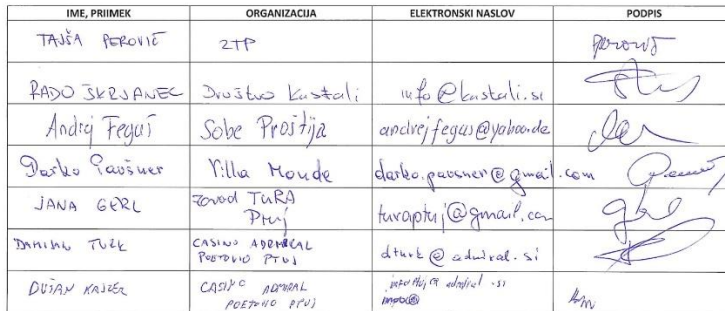 IME, PRIIMEK ORGANIZACIJA ELEKTRONSKI NASLOV PODPIS
TAJŠA PEROVIĆ ZTP
RADO ŠKRJANEC Društvo Kustali info@kustali.si
Andrej Feguš Sobe Proštija andrejfegus@yahoo.de
Darko Pavšner Villa Monde darko.pavsner@gmail.com
JANA GERL zavod TURA
Ptuj turaptuj@gmail.com
DAMIJAN TURK CASINO ADMIRAL
POETOVIO PTUJ dturk@admiral.si
DUŠAN CASINO ADMIRAL
POETOVIO PTUJ